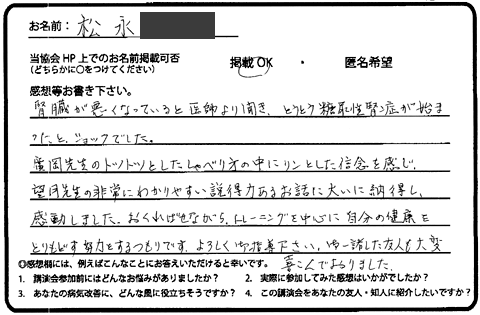 お名前： 松永
当協会HP上でのお名前掲載可否
（どちらかに○をつけてください）
掲載OK ・ 匿名希望
感想等お書き下さい。
腎臓が悪くなっていると医師より聞き、とうとう糖尿性腎症が始ま
ったと、ショックでした。
廣岡先生のトツトツとしたしゃべり方の中にリンとした信念を感じ、
望月先生の非常にわかりやすい説得力あるお話に大いに納得し、
感動しました。おくればせながら、トレーニングを中心に自分の健康を
とりもどす努力をするつもりです。よろしく御指導下さい。御一緒した友人も大変
喜こんでおりました。
◎感想欄には、例えばこんなことにお答えいただけると幸いです。
1. 講演会参加前にはどんなお悩みがありましたか？ 2. 実際に参加してみた感想はいかがでしたか？
3. あなたの病気改善に、どんな風に役立ちそうですか？ 4. この講演会をあなたの友人・知人に紹介したいですか？